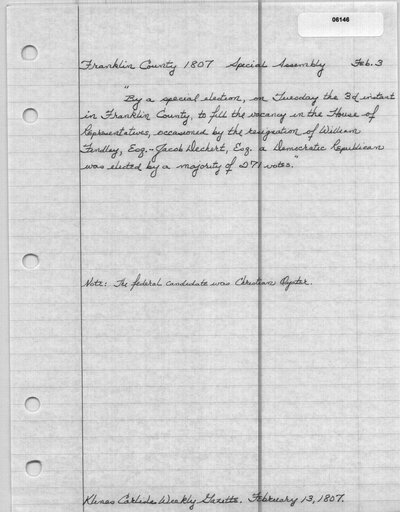 06146
Franklin County 1807 Special Assembly Feb. 3
"By a special election, on Tuesday the 3d instant
in Franklin County, to fill the vacancy in the House of
Representatives, occasioned by the resignation of William
Findlay, Esq. - Jacob Deckert, Esq. a Democratic Republican
was elected by a majority of 271 votes."
Note: The federal candidate was Christian Oyster.
Klines Carlisle Weekly Gazette. February 13, 1807.